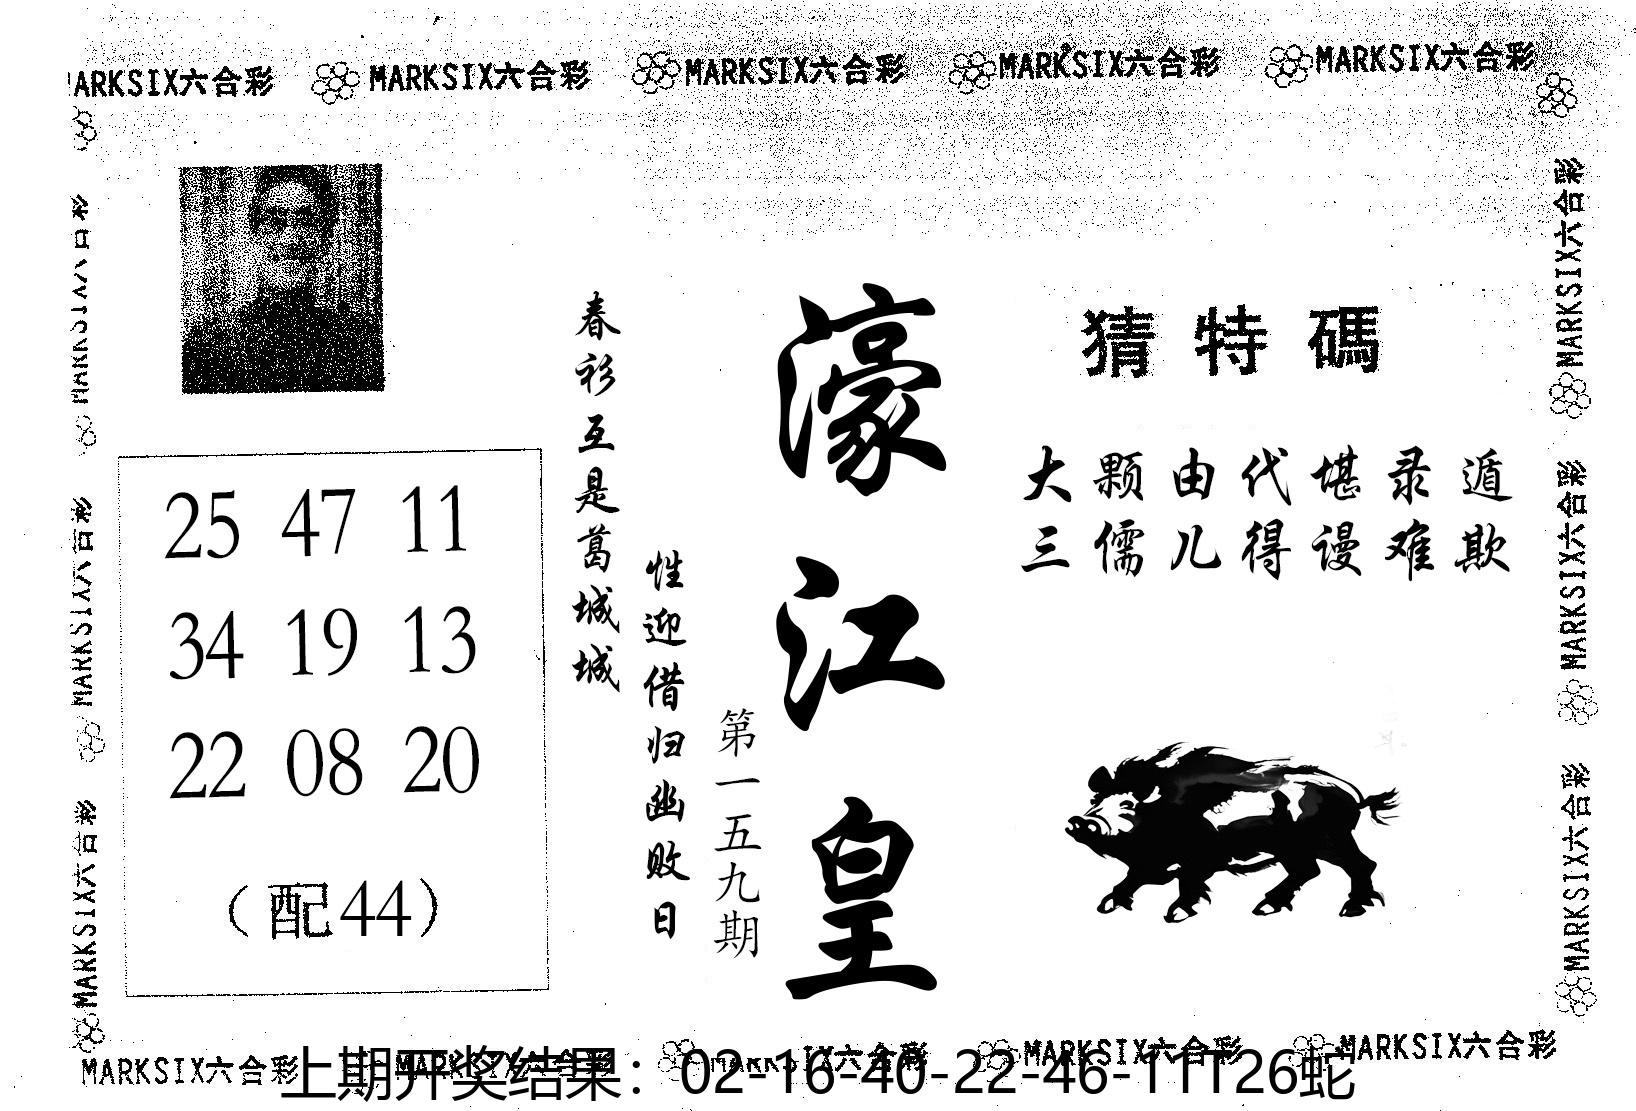 MARKSIX六合彩 MARKSIX六合彩 MARKSIX六合彩 MARKSIX六合彩 MARKSIX六合彩
猜特碼
大颗由代堪录遁
三儒儿得谩难欺
濠江皇
第一五九期
春衫互是葛城城
性迎借归幽败日
25 47 11
34 19 13
22 08 20
（配44）
MARKSIX六合彩
MARKSIX六合彩
MARKSIX六合彩
MARKSIX六合彩
MARKSIX六合彩
MARKSIX六合彩
MARKSIX六合彩 MARKSIX六合彩 MARKSIX六合彩 MARKSIX六合彩 MARKSIX六合彩
上期开奖结果：02-16-40-22-46-11T26蛇